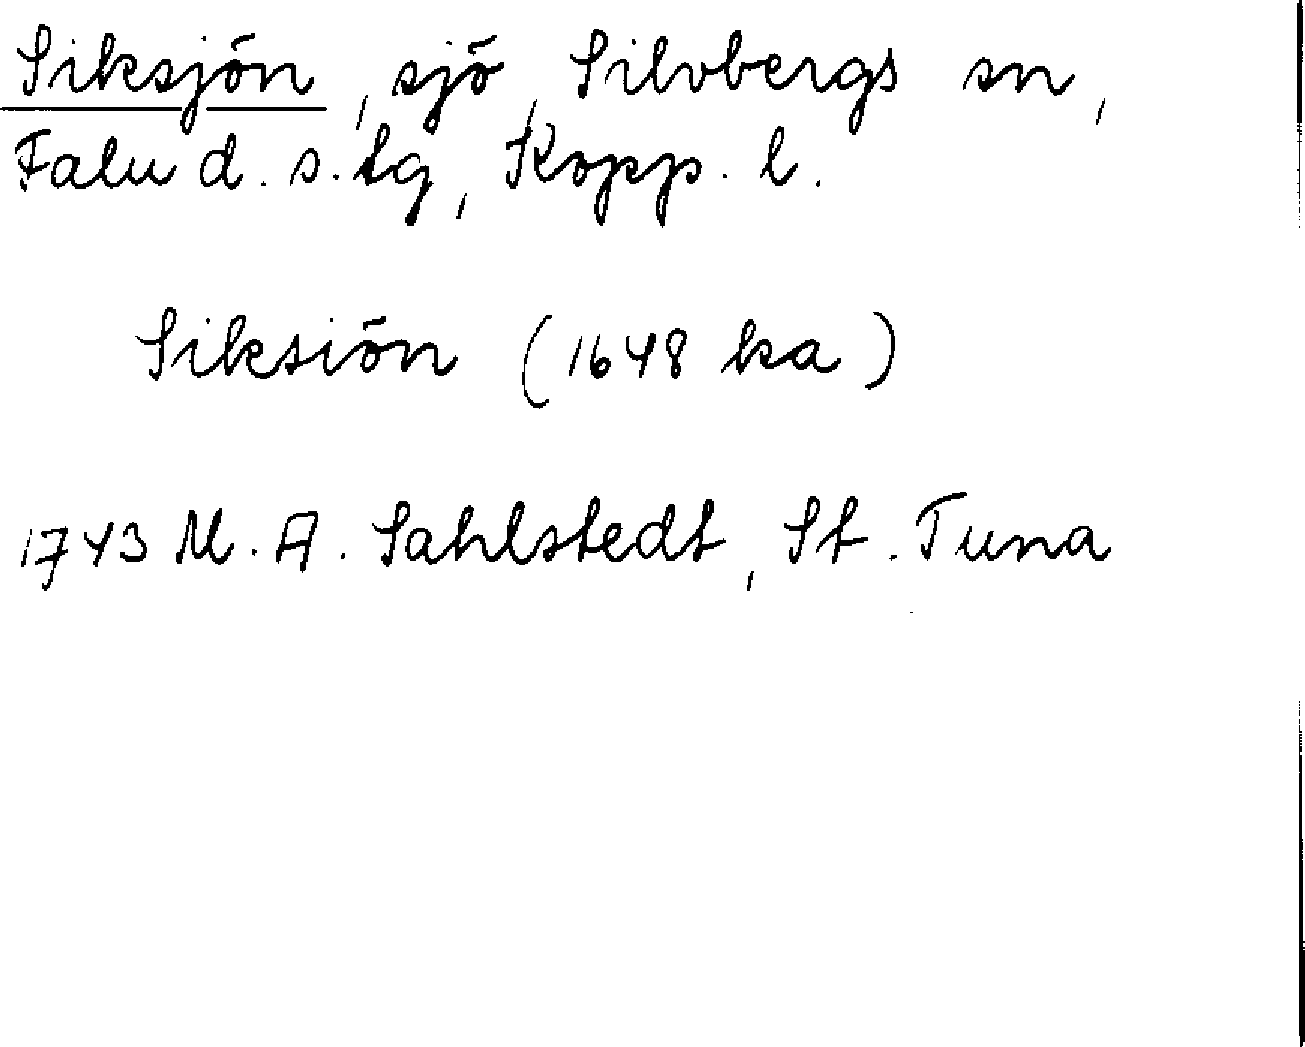 Siksjön, sjö, Silvbergs sn,
Falu d. s. tg, Kopp. l.
Siksiön (1648 ka)
1743 M. A. Sahlstedt, St. Tuna